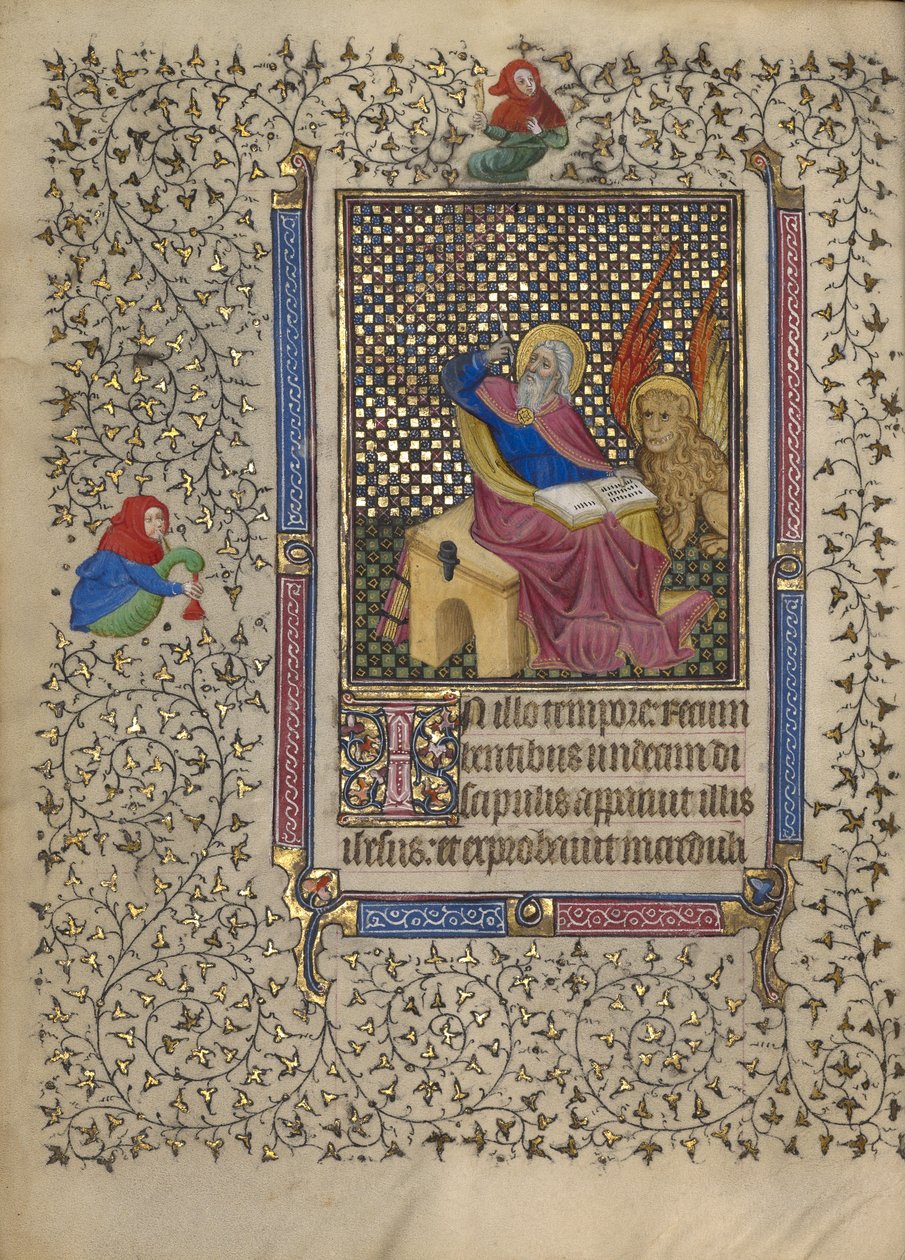 IN illo tempore: Recum
bentibus undecim di
scipulis apparuit illis
ihesus: et exprobauit incredul